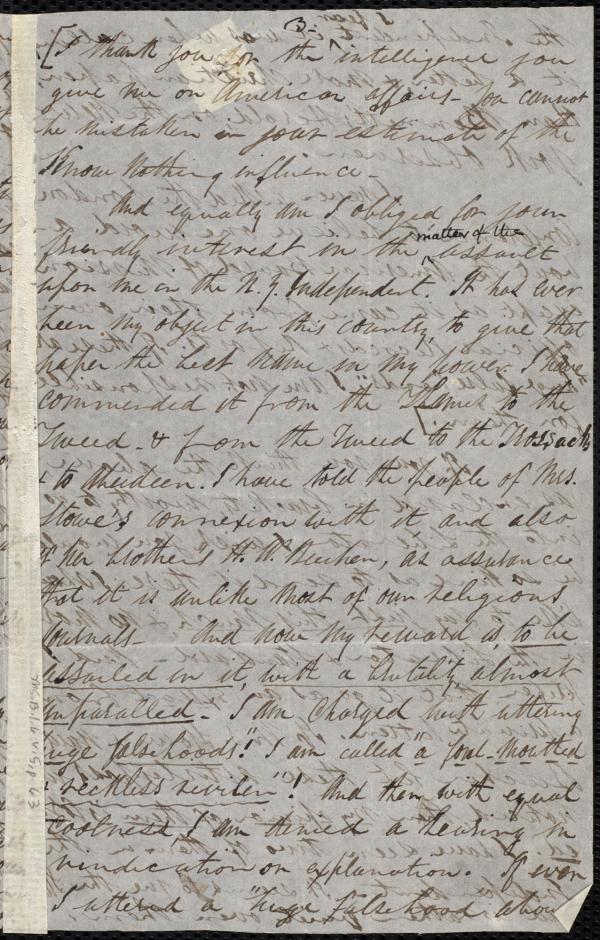 3-
[I thank you for the intelligence you
give me on American affairs - You cannot
be mistaken in your estimate of the
Know Nothing influence -
And equally am I obliged for your
friendly interest in the matter of the assault
upon me in the N.Y. Independent. It has ever
been my object in this country, to give that
paper the best name in my power. I have
commended it from the Thames to the
Tweed - & from the Tweed to the Trossachs
& to Aberdeen. I have told the people of Mrs.
Stowe's connexion with it and also
of her brother's H. W. Beecher, as assurance
that it is unlike most of our religious
journals - And now my reward is to be
assailed in it, with a brutality almost
unparalled - I am charged with uttering
huge falsehoods"! I am called "a foul-mouthed
& reckless reviler"! And then with equal
coolness, I am denied a hearing in
vindication or explanation. If ever
I uttered a "huge falsehood about